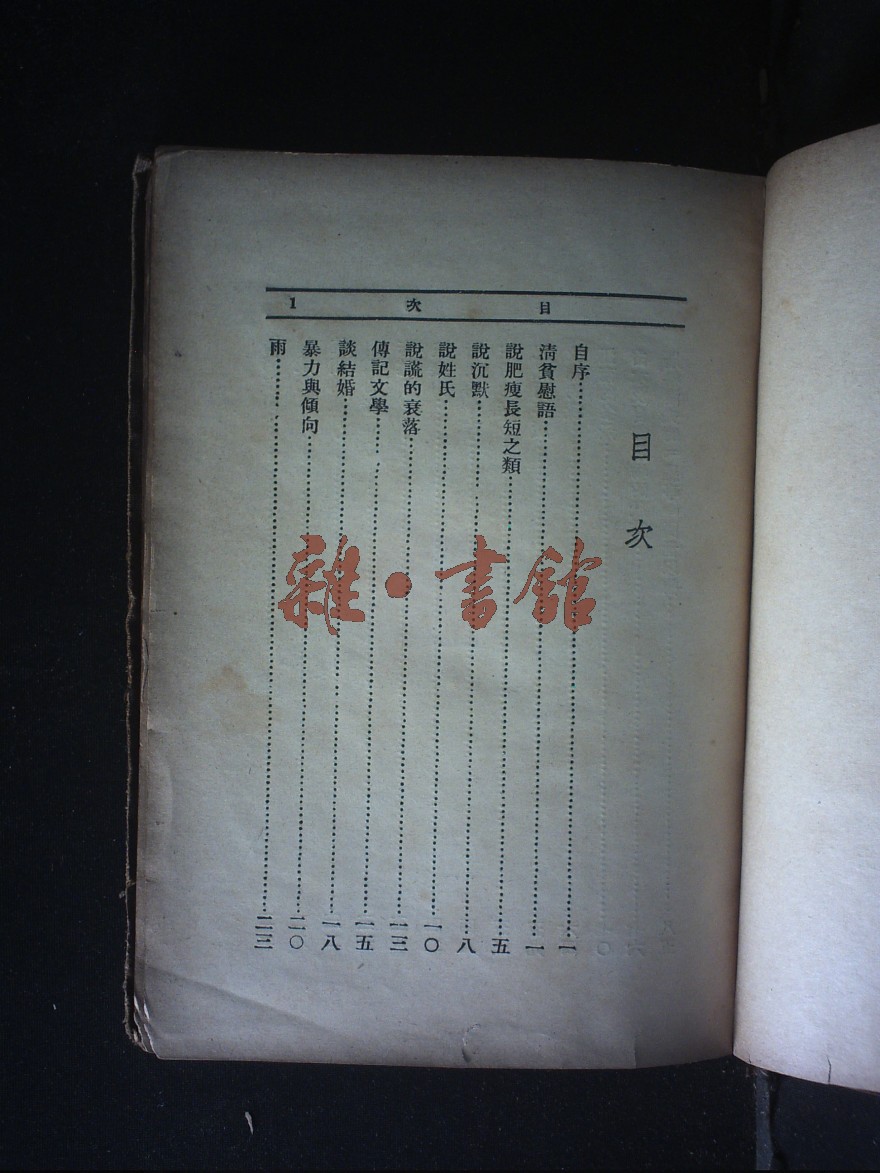 目 次 1
目次
自序……一
清貧慰語……一
說肥瘦長短之類……五
說沉默……八
說姓氏……一〇
說謊的衰落……一三
傳記文學……一五
談結婚……一八
暴力與傾向……二〇
雨……二三
雜·書館